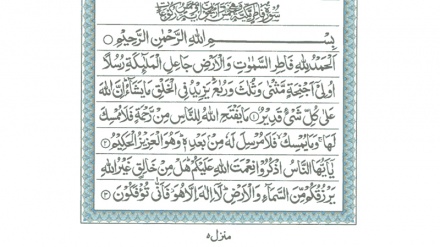 بِسْمِ اللهِ الرَّحْمٰنِ الرَّحِيْمِ ○
اَلْحَمْدُ لِلّٰهِ فَاطِرِ السَّمٰوٰتِ وَالْاَرْضِ جَاعِلِ الْمَلٰٓئِكَةِ رُسُلًا
اُولِيْٓ اَجْنِحَةٍ مَّثْنٰى وَثُلٰثَ وَرُبٰعَ يَزِيْدُ فِي الْخَلْقِ مَا يَشَآءُ اِنَّ اللهَ
عَلٰى كُلِّ شَيْءٍ قَدِيْرٌ ۱ مَا يَفْتَحِ اللهُ لِلنَّاسِ مِنْ رَّحْمَةٍ فَلَا مُمْسِكَ
لَهَا وَمَا يُمْسِكْ فَلَا مُرْسِلَ لَهٗ مِنْۢ بَعْدِهٖ وَهُوَ الْعَزِيْزُ الْحَكِيْمُ ۲
يٰٓاَيُّهَا النَّاسُ اذْكُرُوْا نِعْمَتَ اللهِ عَلَيْكُمْ هَلْ مِنْ خَالِقٍ غَيْرُ اللهِ
يَرْزُقُكُمْ مِّنَ السَّمَآءِ وَالْاَرْضِ لَآ اِلٰهَ اِلَّا هُوَ فَاَنّٰى تُؤْفَكُوْنَ ۳
منزل ۵